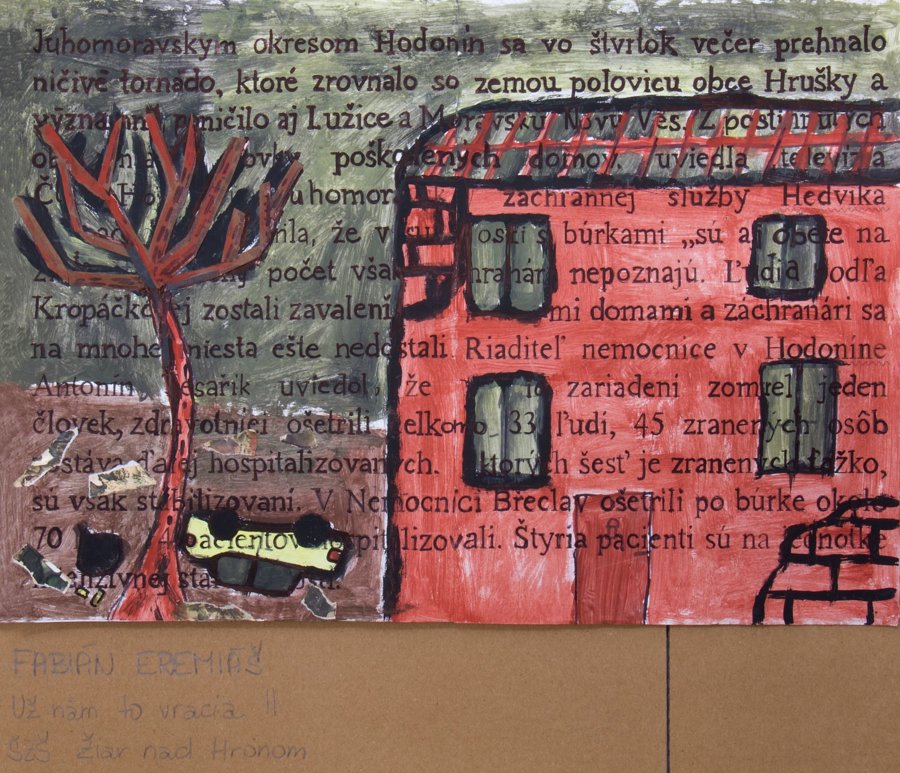 Juhomoravským okresom Hodonín sa vo štvrtok večer prehnalo
ničivé tornádo, ktoré zrovnalo so zemou polovicu obce Hrušky a
významne poničilo aj Lužice a Moravskú Novú Ves. Z postihnutých
poškodených domov, uviedla televízia
záchrannej služby Hedvika
že v súvislosti s búrkami „sú aj obete na
počet však záchranári nepoznajú. Ľudia podľa
Kropáčkovej zostali zavalení mi domami a záchranári sa
na mnohé miesta ešte nedostali. Riaditeľ nemocnice v Hodoníne
Antonín Tesařík uviedol, že zariadení zomrel jeden
človek, zdravotníci ošetrili celkomo 33 ľudí, 45 zranených osôb
zostáva ďalej hospitalizovaných. Z ktorých šesť je zranených ťažko,
sú však stabilizovaní. V Nemocnici Břeclav ošetrili po búrke okolo
70 pacientov hospitalizovali. Štyria pacienti sú na jednotke
intenzívnej
FABIÁN EREMIÁŠ
Už nám to vracia !!
SZŠ Žiar nad Hronom